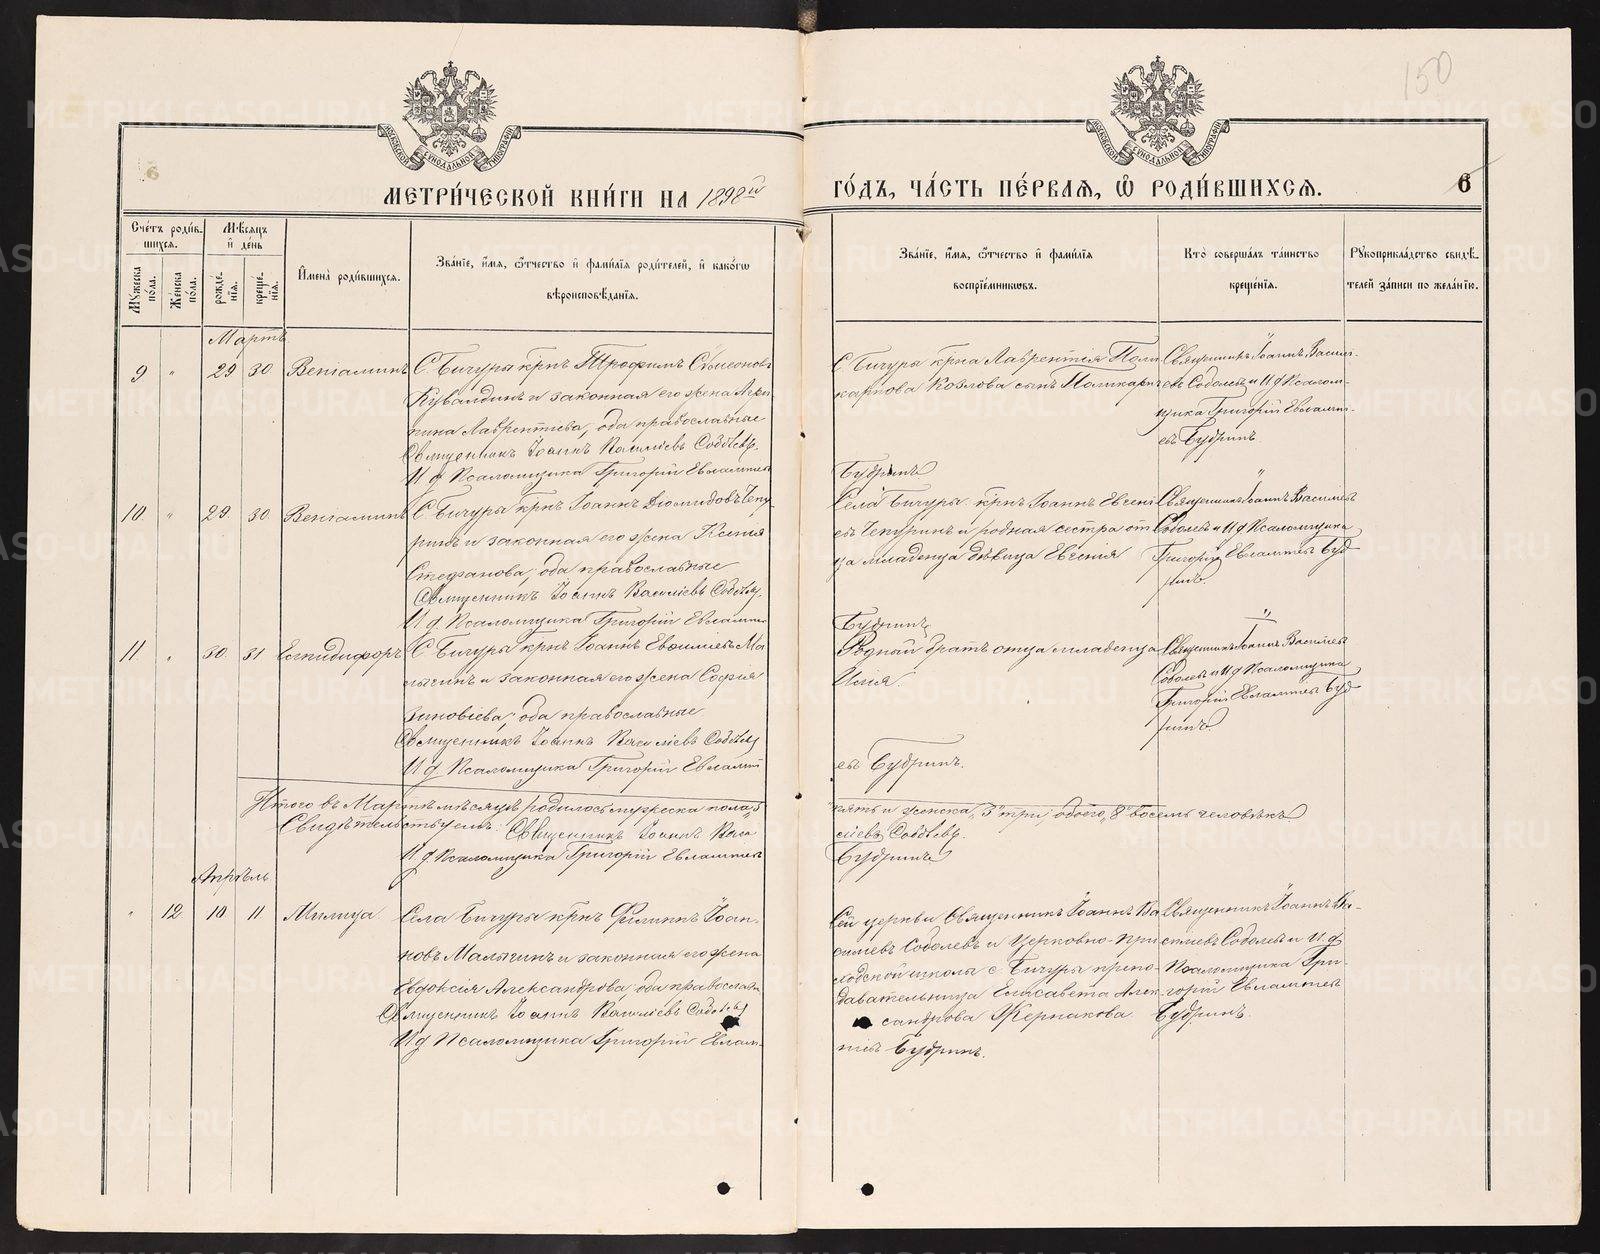 150
МЕТРИ́ЧЕСКОЙ КНИ́ГИ НА 1898й
ГО́ДЪ, ЧА́СТЬ ПЕ́РВАЯ, Ѡ҆ РОДИ́ВШИХСЯ.
6
Сче́тъ роди́в-
шихся.
Мѣ́сяцъ
и҆ де́нь
Му́жеска
по́ла.
Же́нска
по́ла.
рожде́-
нїя.
креще́-
нїя.
И҆мена̀ роди́вшихся.
Зва́нїе, и҆́мя, ѻ҆́тчество и҆ фами́лїя роди́телей, и҆ како́гѡ
вѣроисповѣ́данїя.
Зва́нїе, и҆́мя, ѻ҆́тчество и҆ фами́лїя
воспрїе́мникѡвъ.
Кто̀ соверша́лъ та́инство
креще́нїя.
Рꙋкоприкла́дство свидѣ́-
телей за́писи по жела́нїю.
Мартъ
9 " 29 30 Веніаминъ
С. Бичуры крнъ Трофимъ Сѵмеоновъ
Кувалдинъ и законная его жена Агри
пина Лаврентіева, оба православные
Священникъ Іоаннъ Василіевъ Соболевъ.
И д Псаломщика Григорій Евлампіев
С Бичуры крна Лаврентія Поли
карпова Козлова сынъ Поликарпъ
Будринъ
Священникъ Іоаннъ Васил-
евъ Соболевъ и И д Псалом-
щика Григорій Евлампі-
евъ Будринъ
10. " 29. 30. Веніаминъ
С Бичуры крнъ Іоаннъ Діомидовъ Чепу
ринъ и законная его жена Ксенія
Стефанова; оба православные
Священникъ Іоаннъ Василіевъ Соболевъ.
И д. Псаломщика Григорій Евлампіев
Села Бичуры крнъ Іоаннъ Евгені
евъ Чепуринъ и родная сестра от
ца младенца дѣвица Евгенія
Будринъ
Священникъ Іоаннъ Василіев
Соболевъ и И д Псаломщика
Григорій Евлампіев Буд
ринъ.
11 " 30. 31
С Бичуры крнъ Іоаннъ Евѳиміевъ Ма
лыгинъ и законная его жена Софія
Зиновіева; оба православные.
Священникъ Іоаннъ Василіевъ Соболевъ
И д Псаломщика Григорій Евлампі
Родной братъ отца младенца
евъ Будринъ.
Священникъ Іоаннъ Василіев
Соболевъ и И д Псаломщика
Григорій Евлампіев Буд
ринъ.
Итого въ Мартѣ мѣсяцѣ родилось мужеска пола "5"
пять и женска "3" три обоего "8" восемь человѣкъ
Свидѣтельствуемъ: Священникъ Іоаннъ Васи
ліевъ Соболевъ.
И д. Псаломщика Григорій Евлампіев
Будринъ
Апрѣль.
" 12 10 11 Милица
Села Бичуры крнъ Филиппъ Іоан-
новъ Малыгинъ и законная его жена
Евдоксія Александрова, оба православн
Священникъ Іоаннъ Василіевъ Соболевъ
И д Псаломщика Григорій Евлам-
Сей церкви Священникъ Іоаннъ Ва
силіевъ Соболевъ и Церковно-при
ходской школы с Бичуры препо-
давательница Елисавета Алек
сандрова Жернакова
піев Будринъ.
Священникъ Іоаннъ Ва-
силіевъ Соболевъ и И. д
Псаломщика Гри-
горій Евлампіев
Будринъ.